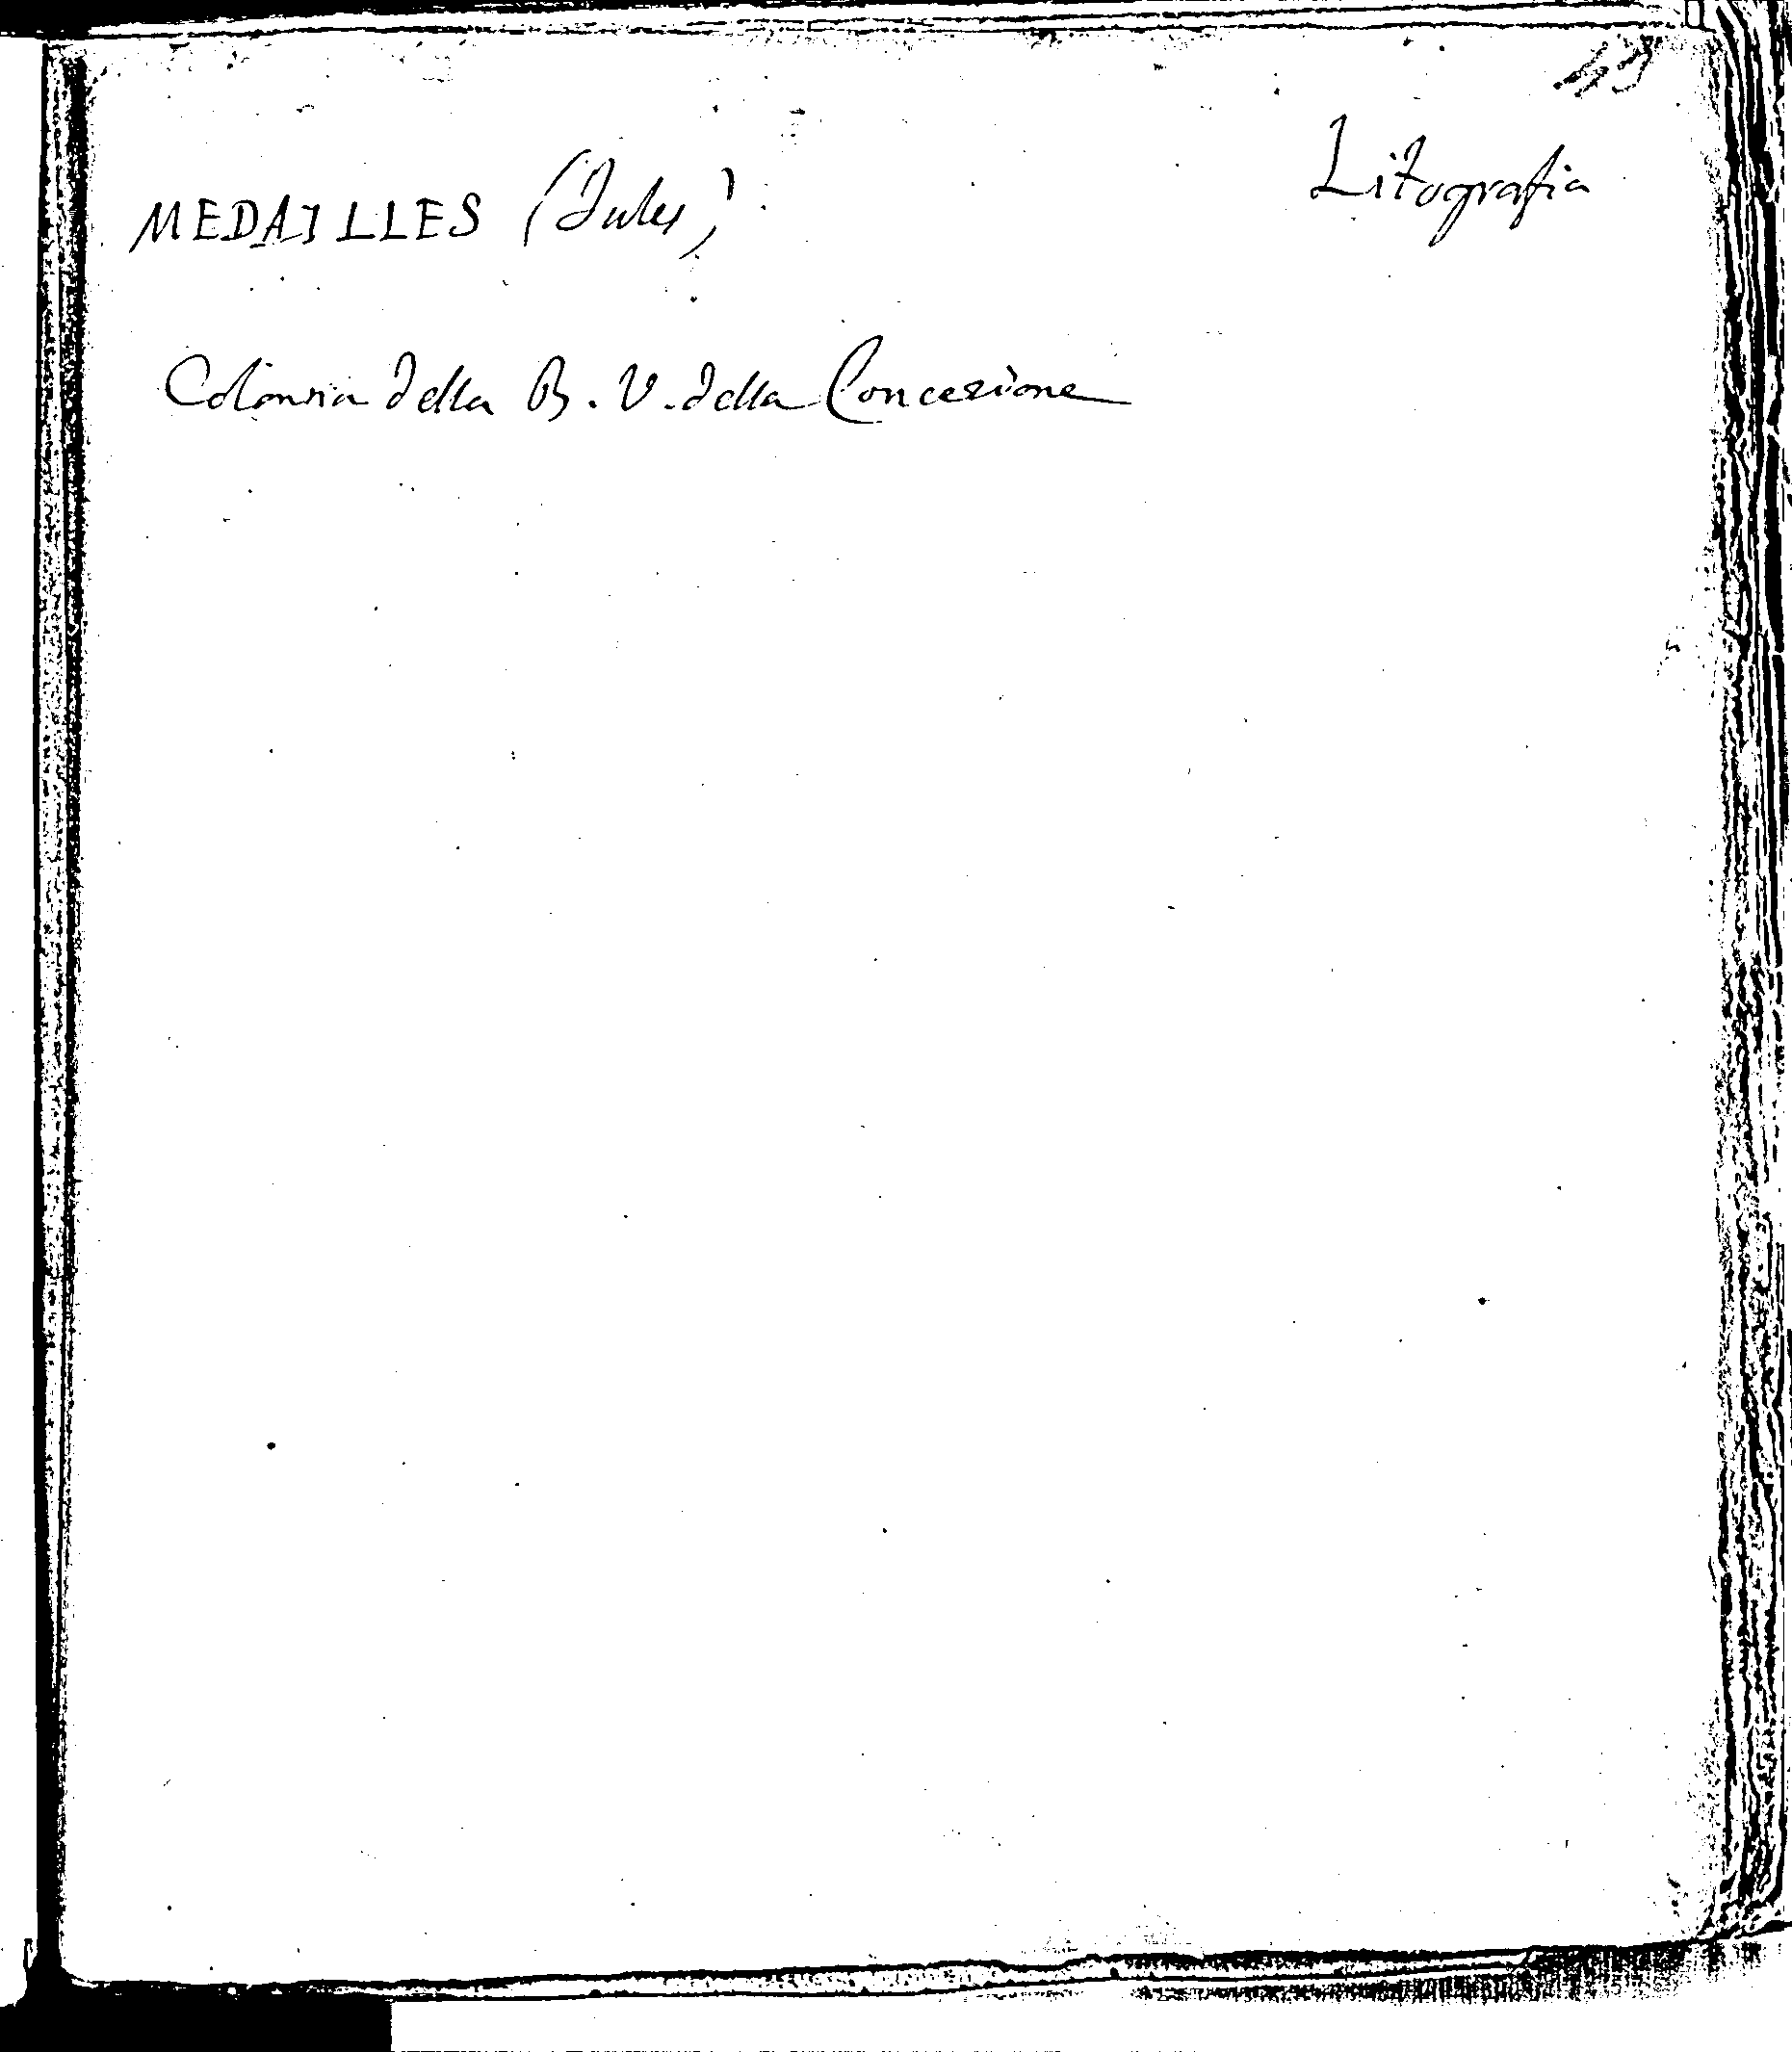 Litografia
MEDAILLES (Jules)
Colonna della B. V. della Concezione